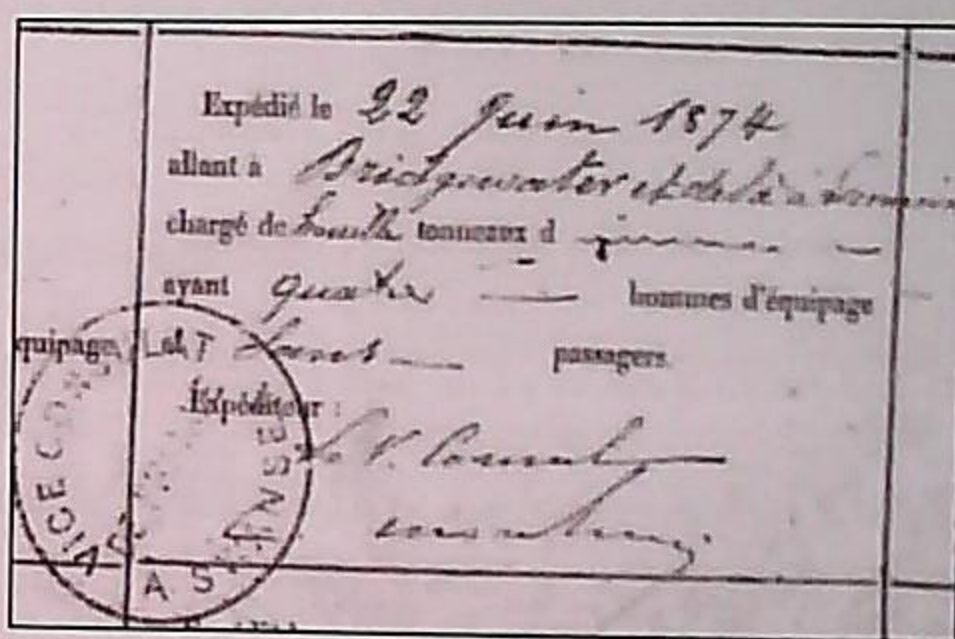 Expédié le 22 Juin 1874
allant à Bridgewater et de là à
chargé de houille tonneaux d
ayant quatre hommes d'équipage
quipage et sans passagers
Expéditeur :
Le V. Consul
VICE CONSULAT A SWANSEA